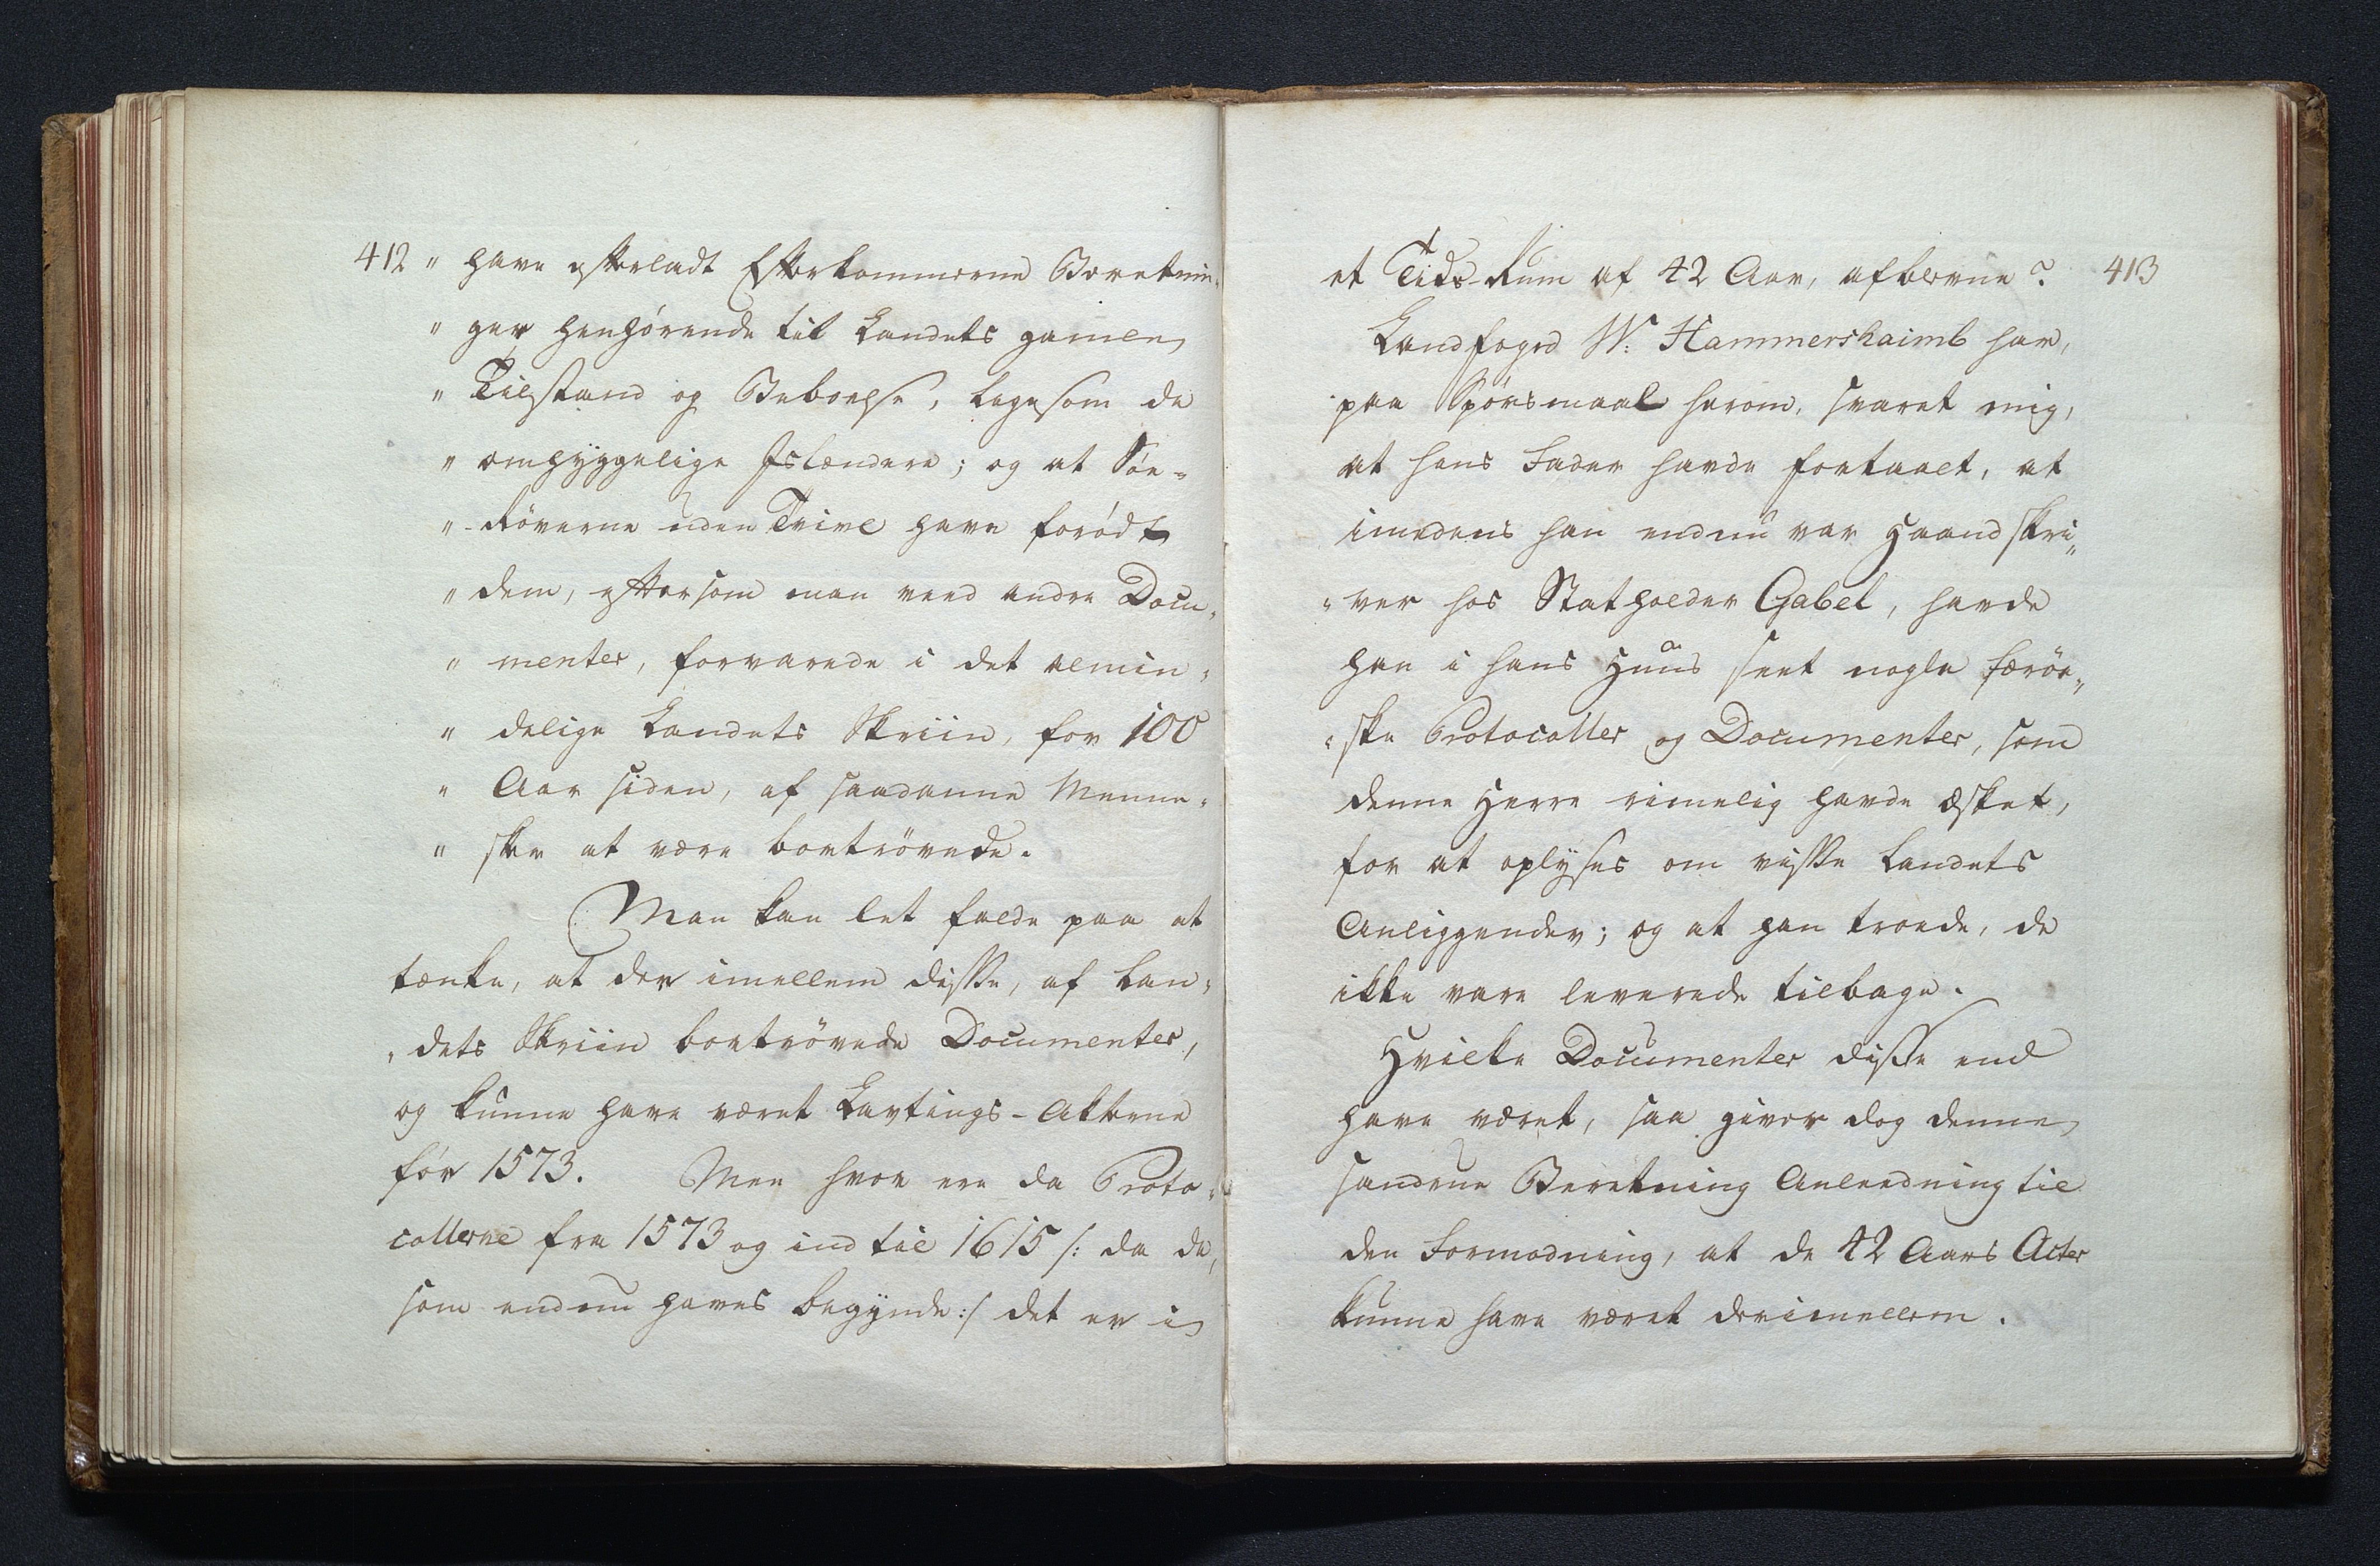 412 " have efterladt Efterkommerne Beretnin-
" ger henhörende til Landets gamle
" Tilstand og Beboelse, ligesom de
" omhyggelige Islændere; og at Söe-
" -Röverne uden Tvivl have forödt
" dem, eftersom man veed andre Docu-
" menter, forvarede i det almin-
" delige Landets Skriin, for 100
" Aar siden, af saadanne Menne-
" sker at være bortrövede.
Man kan let falde paa at
tænke, at der imellem disse, af Lan-
"dets Skriin bortrövede Documenter,
og kunne have været Lavtings-Akterne
för 1573. Men hvor ere da Proto-
collerne fra 1573 og ind til 1615 /: da de,
som endnu haves begynde :/ det er i
et Tids-Rum af 42 Aar, afblevne? 413
Landfoged W: Hammershaimb har,
paa Spörsmaal herom, svaret mig,
at hans Fader havde fortaalt, at
imedens han endnu var Haandskri-
"ver hos Statholder Gabel, havde
han i hans Huus seet nogle færöe-
"ske Protocoller og Documenter, som
denne Herre rimelig havde æsket,
for at oplyses om visse Landets
Anliggender; og at han troede, de
ikke vare leverede tilbage.
Hvilke Documenter disse end
have været, saa giver dog denne
sandrue Beretning Anleedning til
den Formodning, at de 42 Aars Acter
kunne have været derimellem.